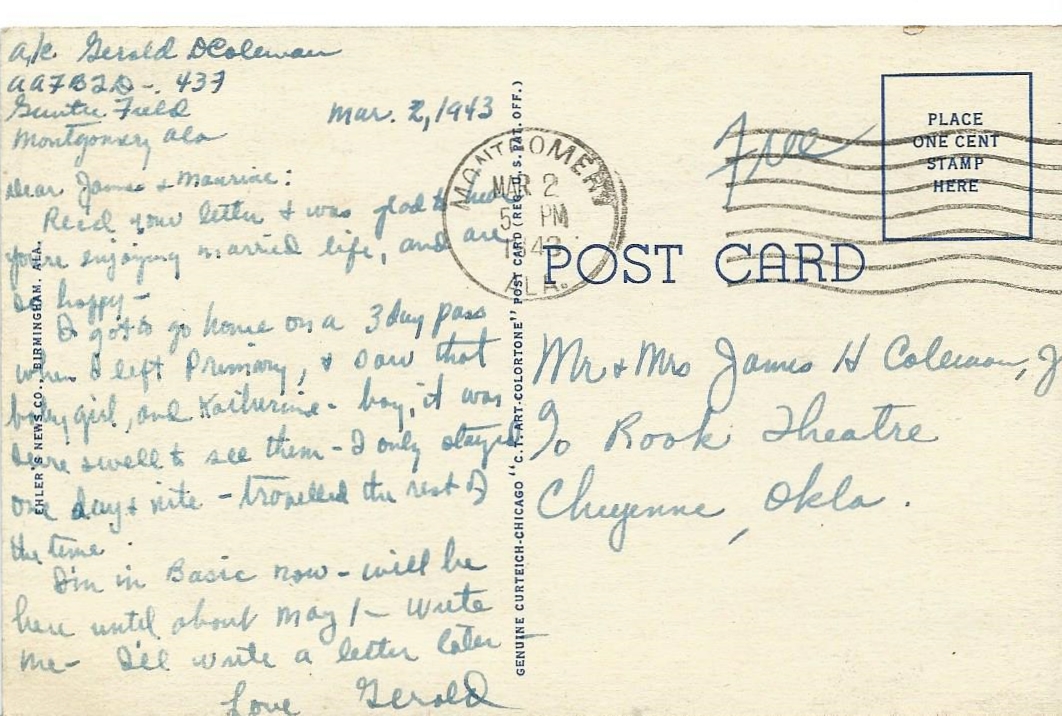 a/c Gerald D Coleman
AAFBTD - 437
Gunter Field
Montgomery Ala
Mar. 2, 1943
Dear James & Maurine:
Rec'd your letter & was glad to
you're enjoying married life, and are
so happy -
I got to go home on a 3 day pass
when I left Primary, & saw that
baby girl, and Katherine - boy, it was
swell to see them - I only stayed
one day & nite - travelled the rest of
the time.
I'm in Basic now - will be
here until about May 1 - Write
me - I'll write a letter later
Love Gerald
EHLER'S NEWS CO., BIRMINGHAM, ALA.
GENUINE CURTEICH-CHICAGO "C.T. ART-COLORTONE" POST CARD (REG. U.S. PAT. OFF.)
MONTGOMERY
MAR 2
PM
1943
ALA.
Free
PLACE
ONE CENT
STAMP
HERE
POST CARD
Mr & Mrs James H Coleman, J
% Rook Theatre
Cheyenne, Okla.